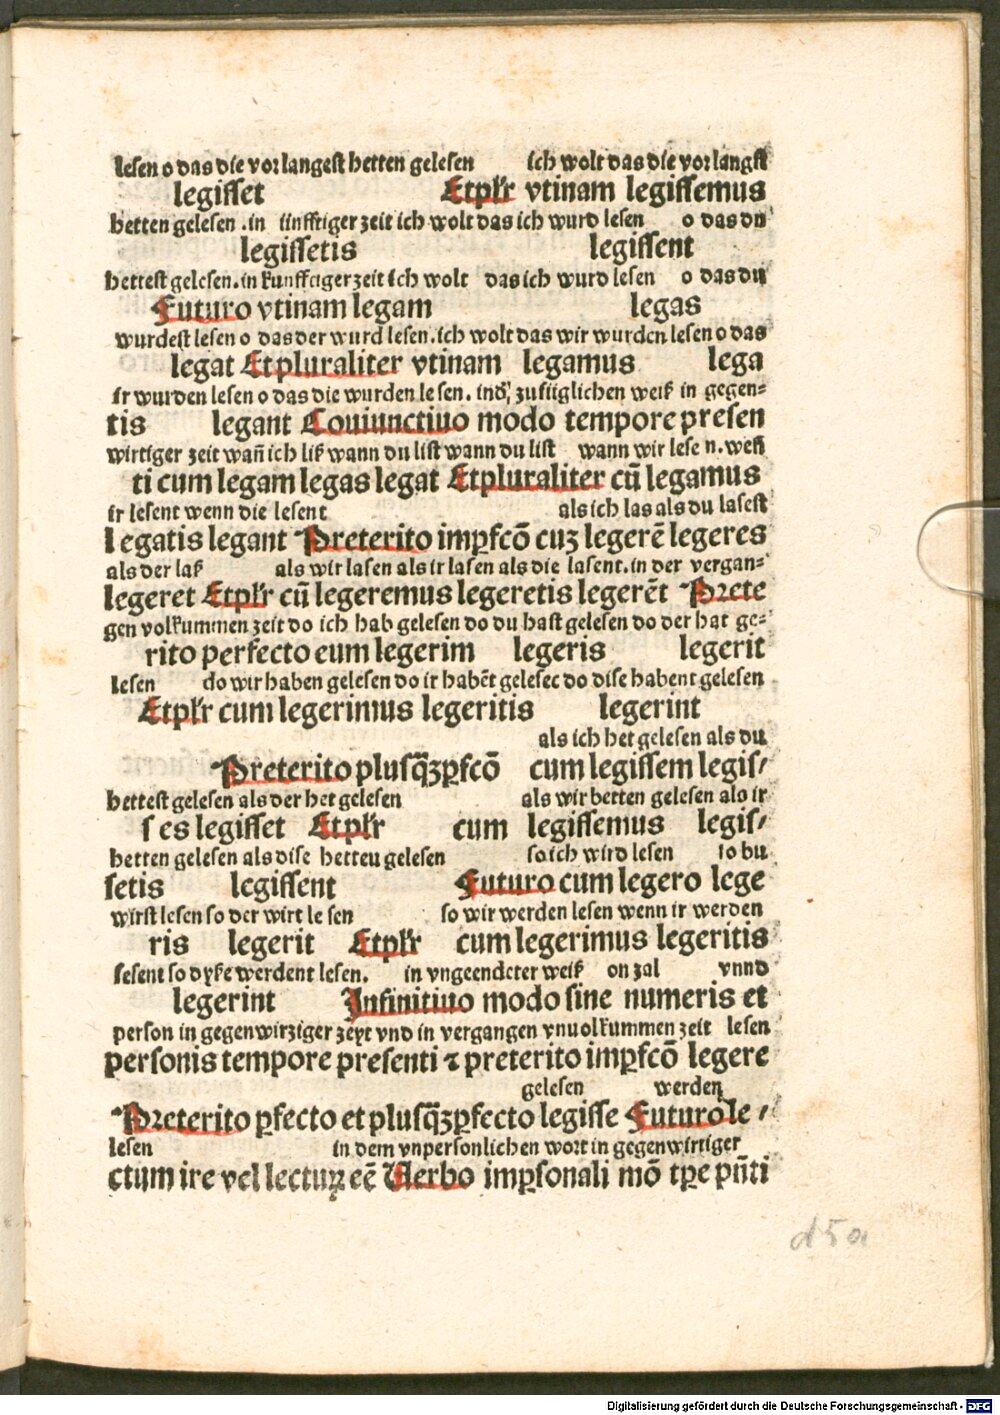 lesen o das die vor langest hetten gelesen ich wolt das die vor langst
legisset Etplr̄ vtinam legissemus
hetten gelesen .in iinfftiger zeit ich wolt das ich wurd lesen o das du
legissetis legissent
hettest gelesen.in kunfftiger zeit ich wolt das ich wurd lesen o das du
Futuro vtinam legam legas
wurdest lesen o das der wurd lesen.ich wolt das wir wurden lesen o das
legat Etpluraliter vtinam legamus lega
ir wurden lesen o das die wurden lesen. in zufüglichen weiß in gegen=
tis legant Coniunctiuo modo tempore presen
wirtiger zeit wañ ich liß wann du list wann du list wann wir lesen. weñ
ti cum legam legas legat Etpluraliter cū legamus
ir lesent wenn die lesent als ich las als du lasest
legatis legant Preterito impfcō cuʒ legerē legeres
als der laß als wir lasen als ir lasen als die lasent. in der vergan=
legeret Etplr̄ cū legeremus legeretis legerēt Prete
gen volkummen zeit do ich hab gelesen do du hast gelesen do der hat ge=
rito perfecto eum legerim legeris legerit
lesen do wir haben gelesen do ir habēt gelesec do dise habent gelesen
Etplr̄ cum legerimus legeritis legerint
als ich het gelesen als du
Preterito plusq̄ʒpfcō cum legissem legis/
hettest gelesen als der het gelesen als wir hetten gelesen als ir
ses legisset Etplr̄ cum legissemus legis/
hetten gelesen als dise hetteu gelesen so ich wird lesen so du
setis legissent Futuro cum legero lege
wirst lesen so der wirt lesen so wir werden lesen wenn ir werden
ris legerit Etplr̄ cum legerimus legeritis
lesent so dyße werdent lesen. in vngeendeter weiß on zal vnnd
legerint Infinitiuo modo sine numeris et
person in gegenwirziger zeyt vnd in vergangen vnuolkummen zeit lesen
personis tempore presenti ⁊ preterito impfcō legere
gelesen werden
Preterito pfecto et plusq̄ʒpfecto legisse Futuro le/
lesen in dem vnpersonlichen wort in gegenwirtiger
ctum ire vel lecturꝝ eē Verbo impsonali mō tꝑe pn̄ti
d5a
Digitalisierung gefördert durch die Deutsche Forschungsgemeinschaft - DFG